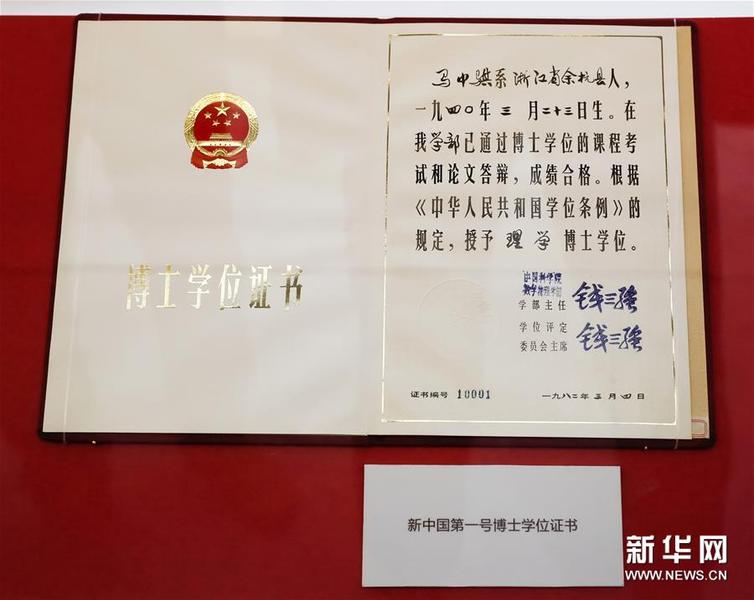 博士学位证书
马中骐系浙江省余杭县人，
一九四〇年三月二十三日生。在
我学部已通过博士学位的课程考
试和论文答辩，成绩合格。根据
《中华人民共和国学位条例》的
规定，授予理学博士学位。
中国科学院
数学物理学部
学部主任 钱三强
学位评定
委员会主席 钱三强
证书编号 10001 一九八二年三月四日
新中国第一号博士学位证书
新华网
WWW.NEWS.CN